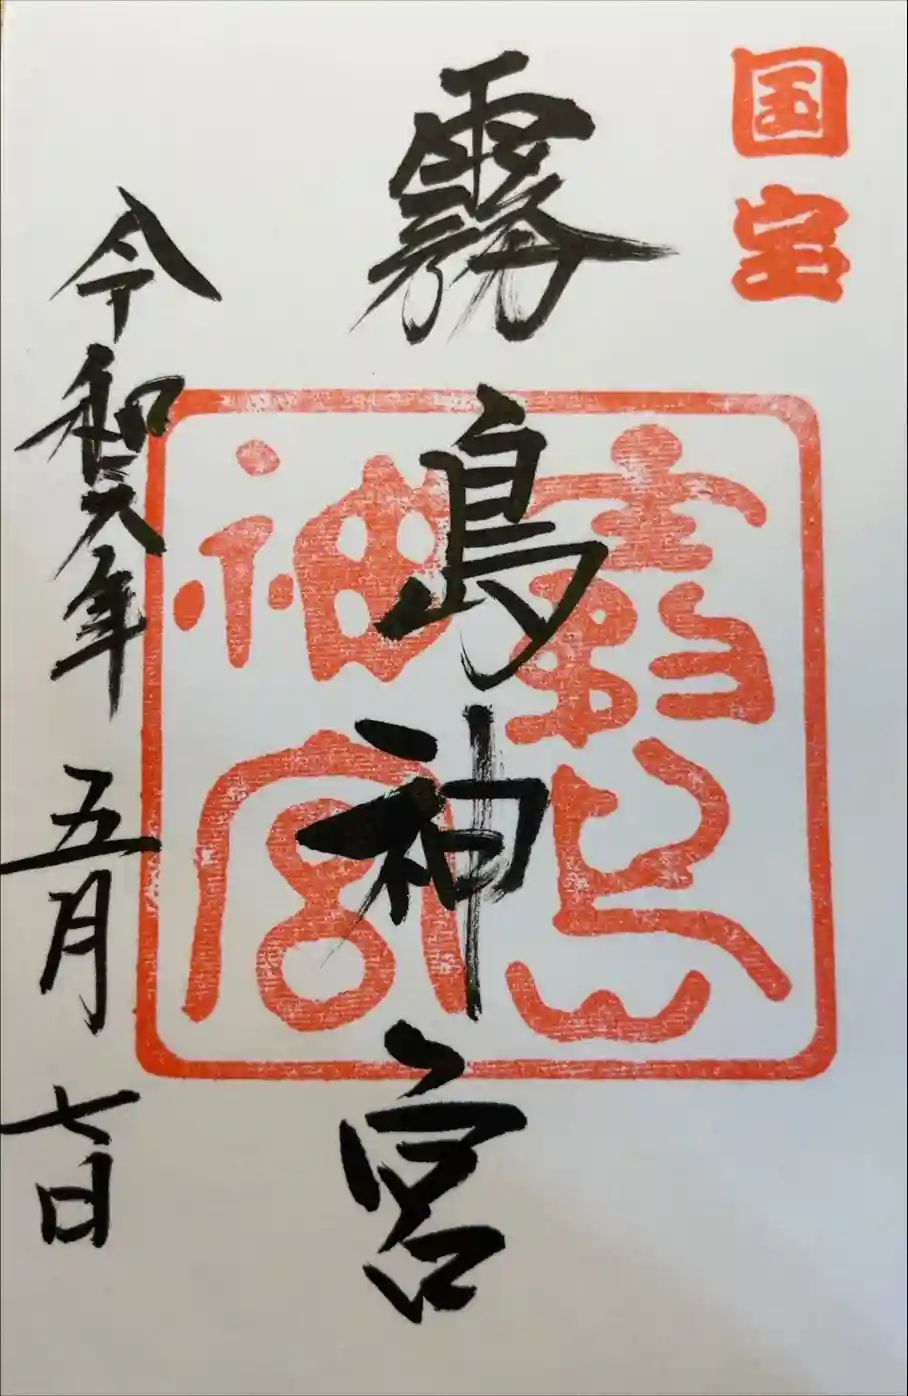 国宝
霧島神宮
霧島
神宮
令和六年五月七日